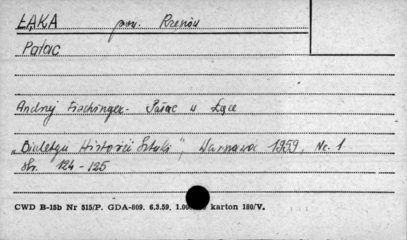 ŁĄKA pow. Rzeszów
Pałac
Andrzej Fischinger. Pałac w Łące
„Biuletyn Historii Sztuki", Warszawa 1959, Nr. 1
Str. 124-125
CWD B-15b Nr 515/P. GDA-809. 6.3.59. karton 180/V.